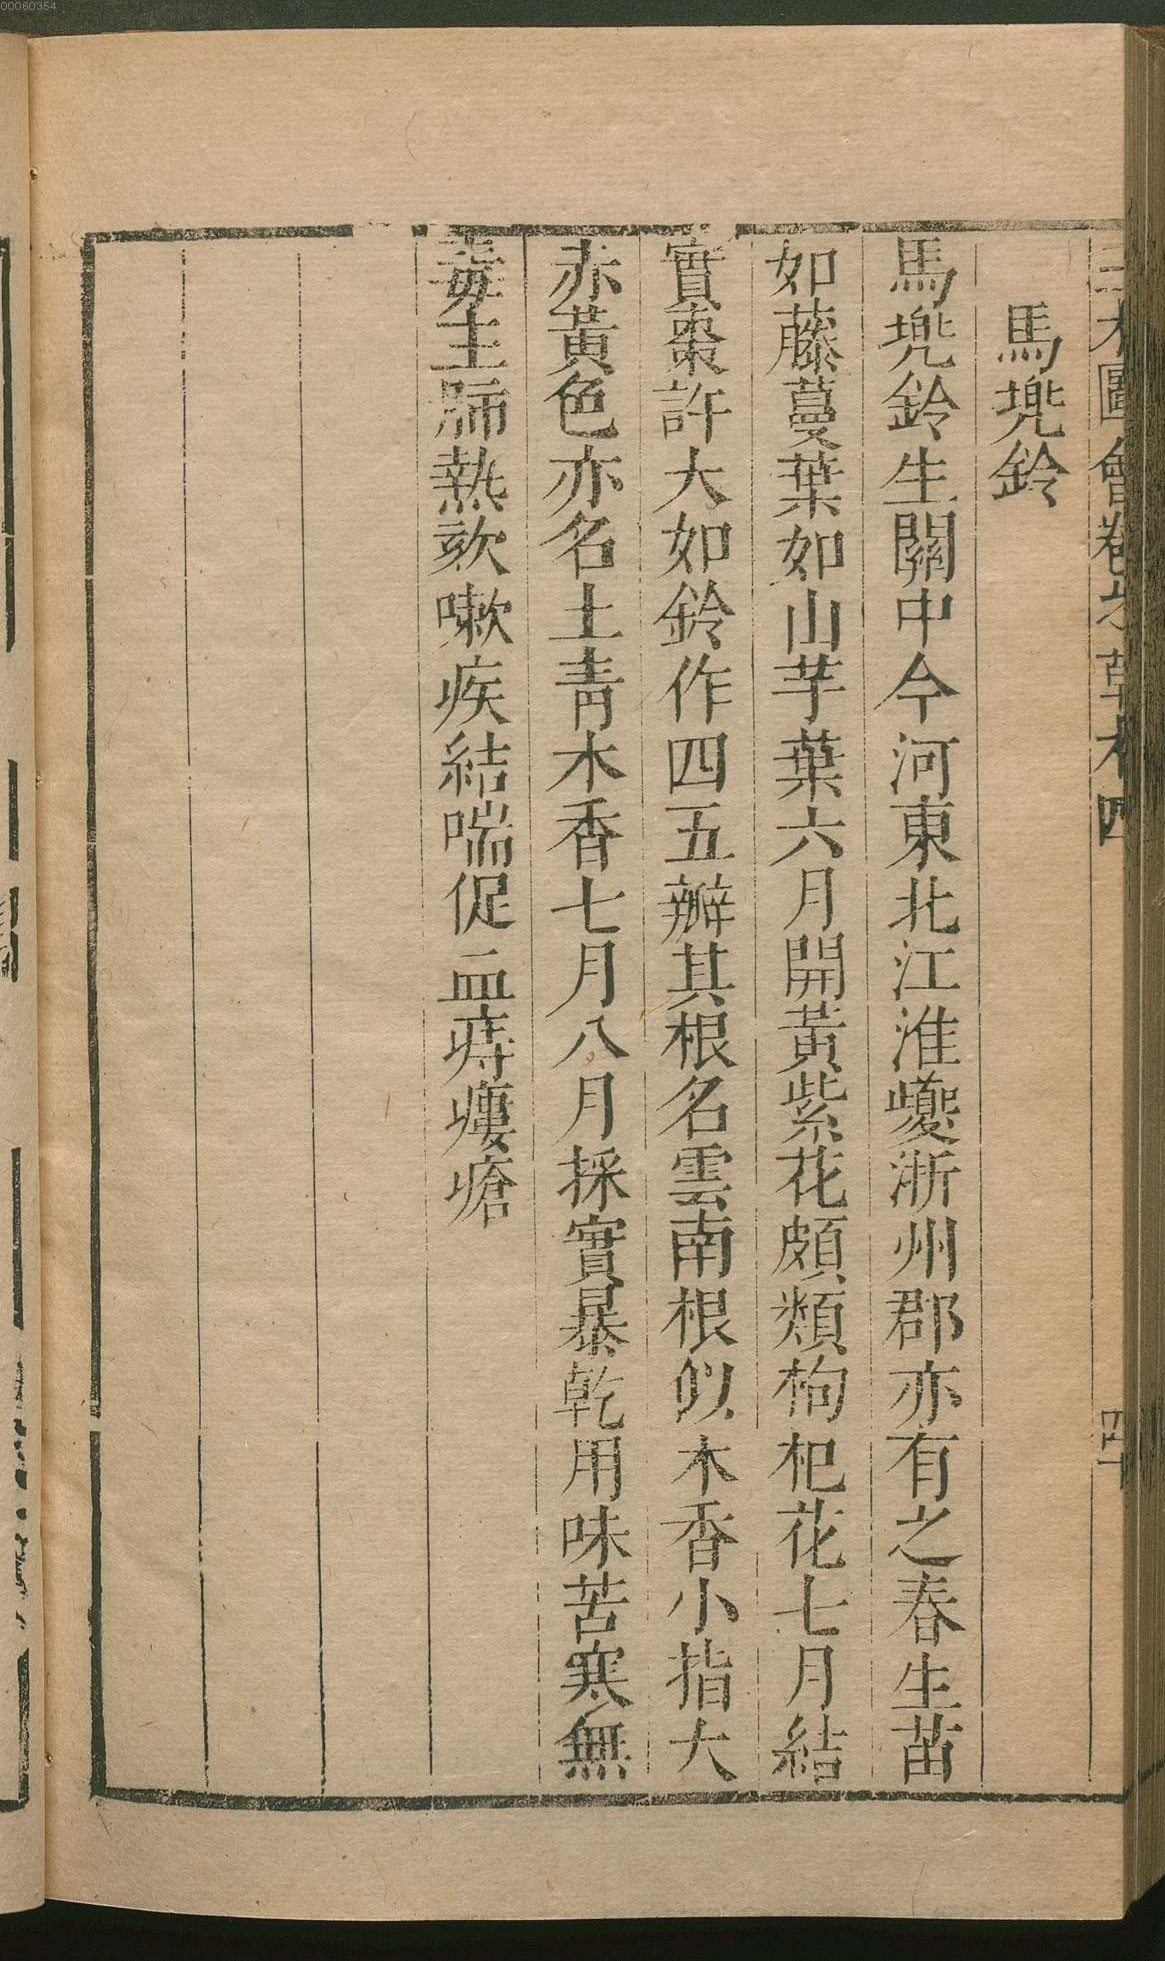 00060354
三才圖會卷之草木四 四十
馬兠鈴
馬兠鈴生關中今河東北江淮夔浙州郡亦有之春生苗
如藤蔓葉如山芋葉六月開黃紫花頗類枸杞花七月結
實棗許大如鈴作四五瓣其根名雲南根似木香小指大
赤黃色亦名土青木香七月八月採實暴乾用味苦寒無
毒主肺熱欬嗽痰結喘促血痔瘻瘡